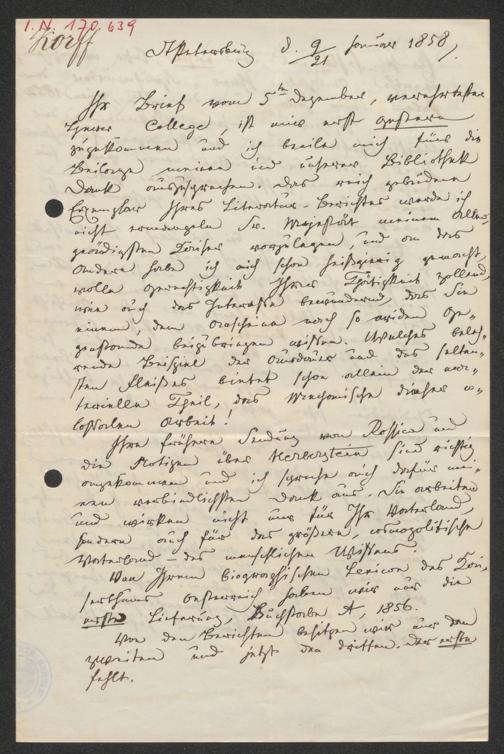 I.N. 170.639
Korff
St Petersburg d. 9/21 Januar 1858.
Ihr Brief vom 5ten Dezember, verehrtester
Herr College, ist mir erst gestern
zugekommen und ich beeile mich für die
Beilage meinen und unserer Bibliothek
Dank auszusprechen. Das reich gebundene
Exemplar Ihres Literatur-Berichtes werde ich
nicht ermangeln Sr. Majestät meinem aller-
gnädigsten Kaiser vorzulegen, und an das
andere habe ich mich schon heißgierig gemacht,
volle Gerechtigkeit Ihrer Thätigkeit zollend,
wie auch das Interesse bewundernd, das Sie
einem, dem Anscheine nach so ariden Ge-
genstande beizubringen wissen. Welches beleh-
rende Beispiel der Ausdauer und des selten-
sten Fleißes bietet schon allein der ma-
terielle Theil, das Mechanische dieser co-
lossalen Arbeit!
Ihre frühere Sendung von Rossica und
die Notizen über Herberstein sind richtig
angekommen und ich sprache auch dafür mei-
nen verbindlichsten Dank aus. Sie arbeiten
und wirken nicht nur für Ihr Vaterland,
sondern auch für das größere, cosmopolitische
Vaterland – des menschlichen Wissens.
Von Ihrem biographischen Lexicon des Kai-
serthums Oesterreich haben wir nur die
erste Lieferung, Buchstabe A, 1856.
Von den Berichten besitzen wir nur den
zweiten und jetzt den dritten. Der erste
fehlt.